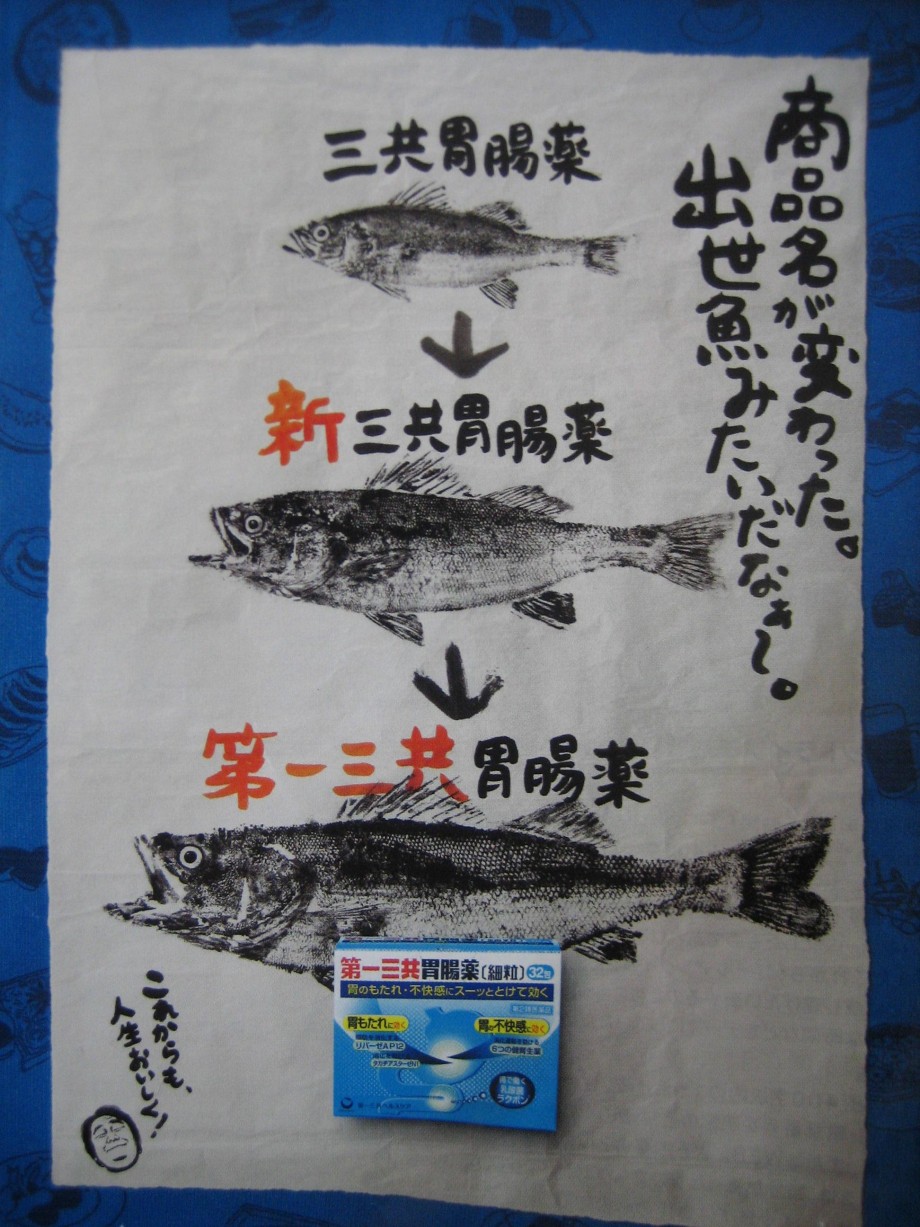 商品名が変わった。
出世魚みたいだなぁ〜。
三共胃腸薬
新三共胃腸薬
第一三共胃腸薬
第一三共胃腸薬〔細粒〕32包
胃のもたれ・不快感にスーッととけて効く
胃もたれに効く
胃の不快感に効く
リパーゼAP12
タカヂアスターゼN1
6つの健胃生薬
腸で働く
乳酸菌
ラクボン
これからも、
人生おいしく!